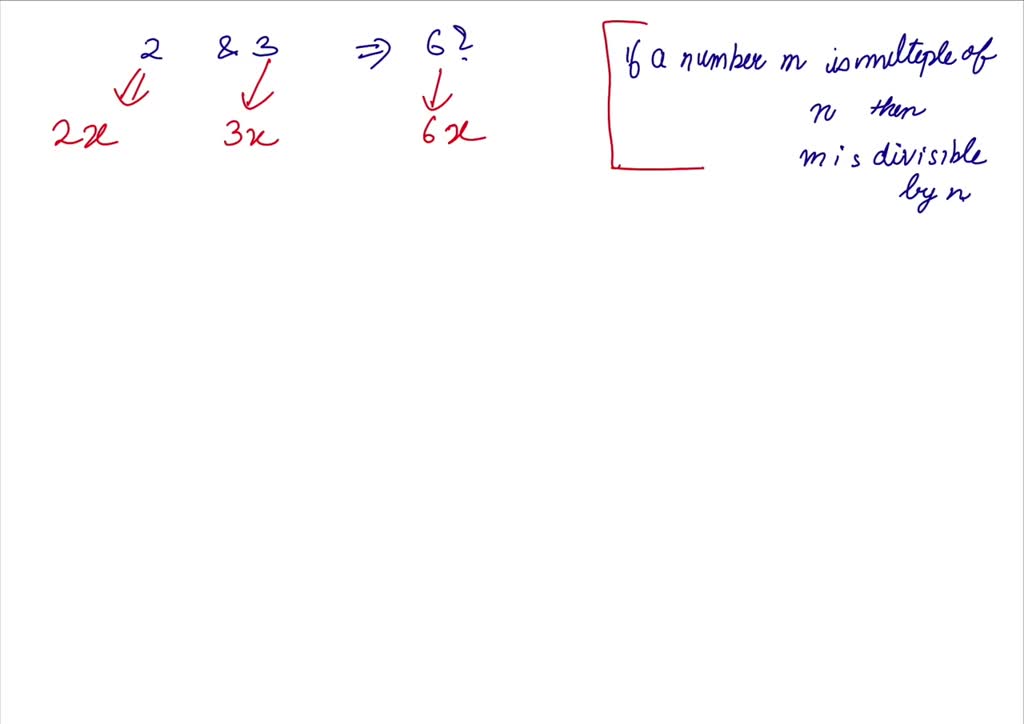 2 & 3 ⇒ 6?
2x 3x 6x
If a number m is multiple of
n then
m is divisible
by n